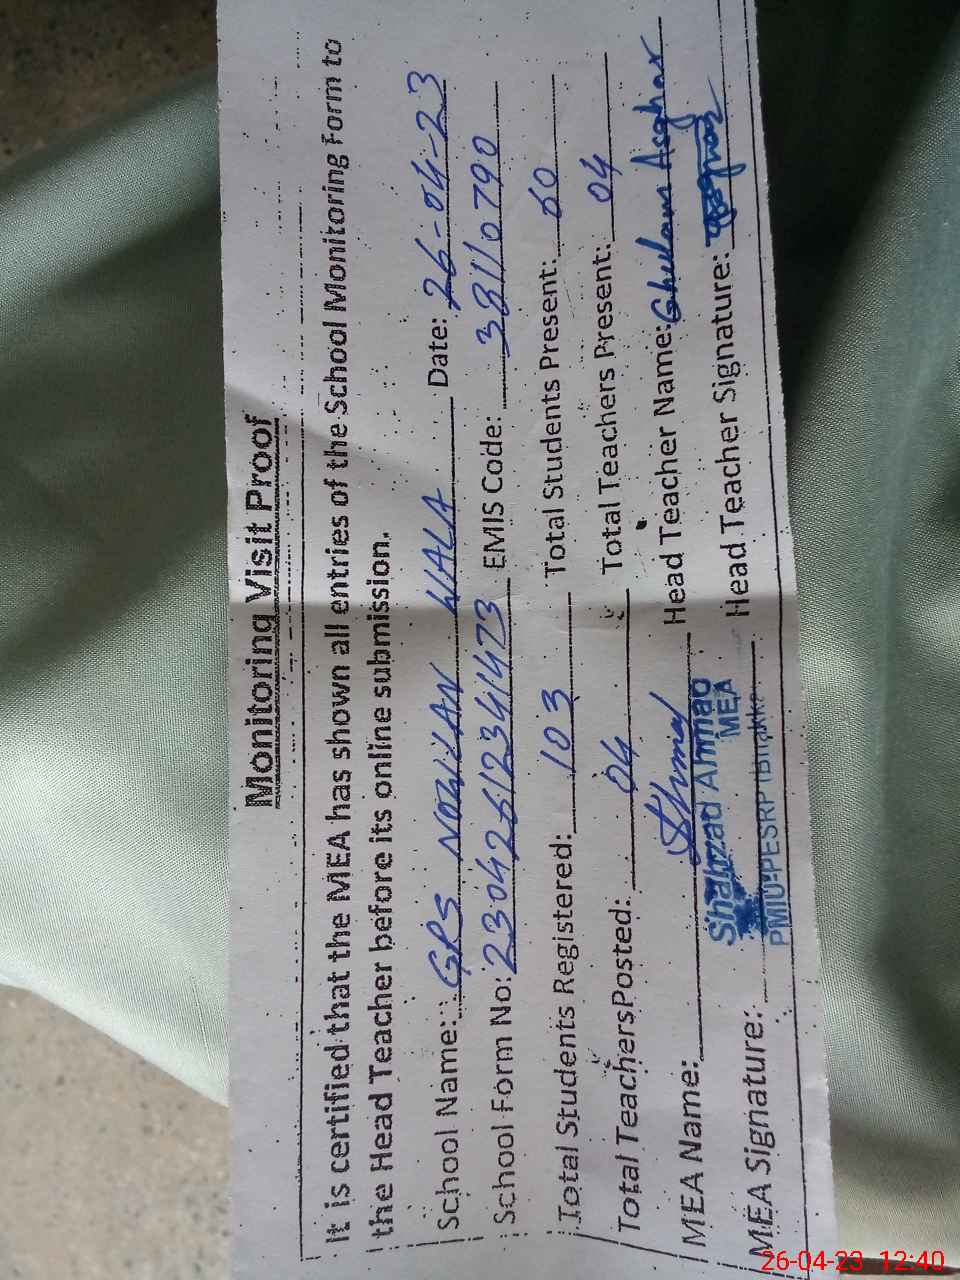 Monitoring Visit Proof
It is certified that the MEA has shown all entries of the School Monitoring Form to
the Head Teacher before its online submission.
School Name: GPS NOWIAN WALA Date: 26-04-23
School Form No: 23042612341473 EMIS Code: 38110790
Total Students Registered: 103 Total Students Present: 60
Total Teachers Posted: 04 Total Teachers Present: 04
MEA Name: Head Teacher Name: Ghulam Asghar
Shahzad Ahmad
MEA
MEA Signature: Head Teacher Signature:
PMIU-PESRP (Bhakkar
26-04-23 12:40